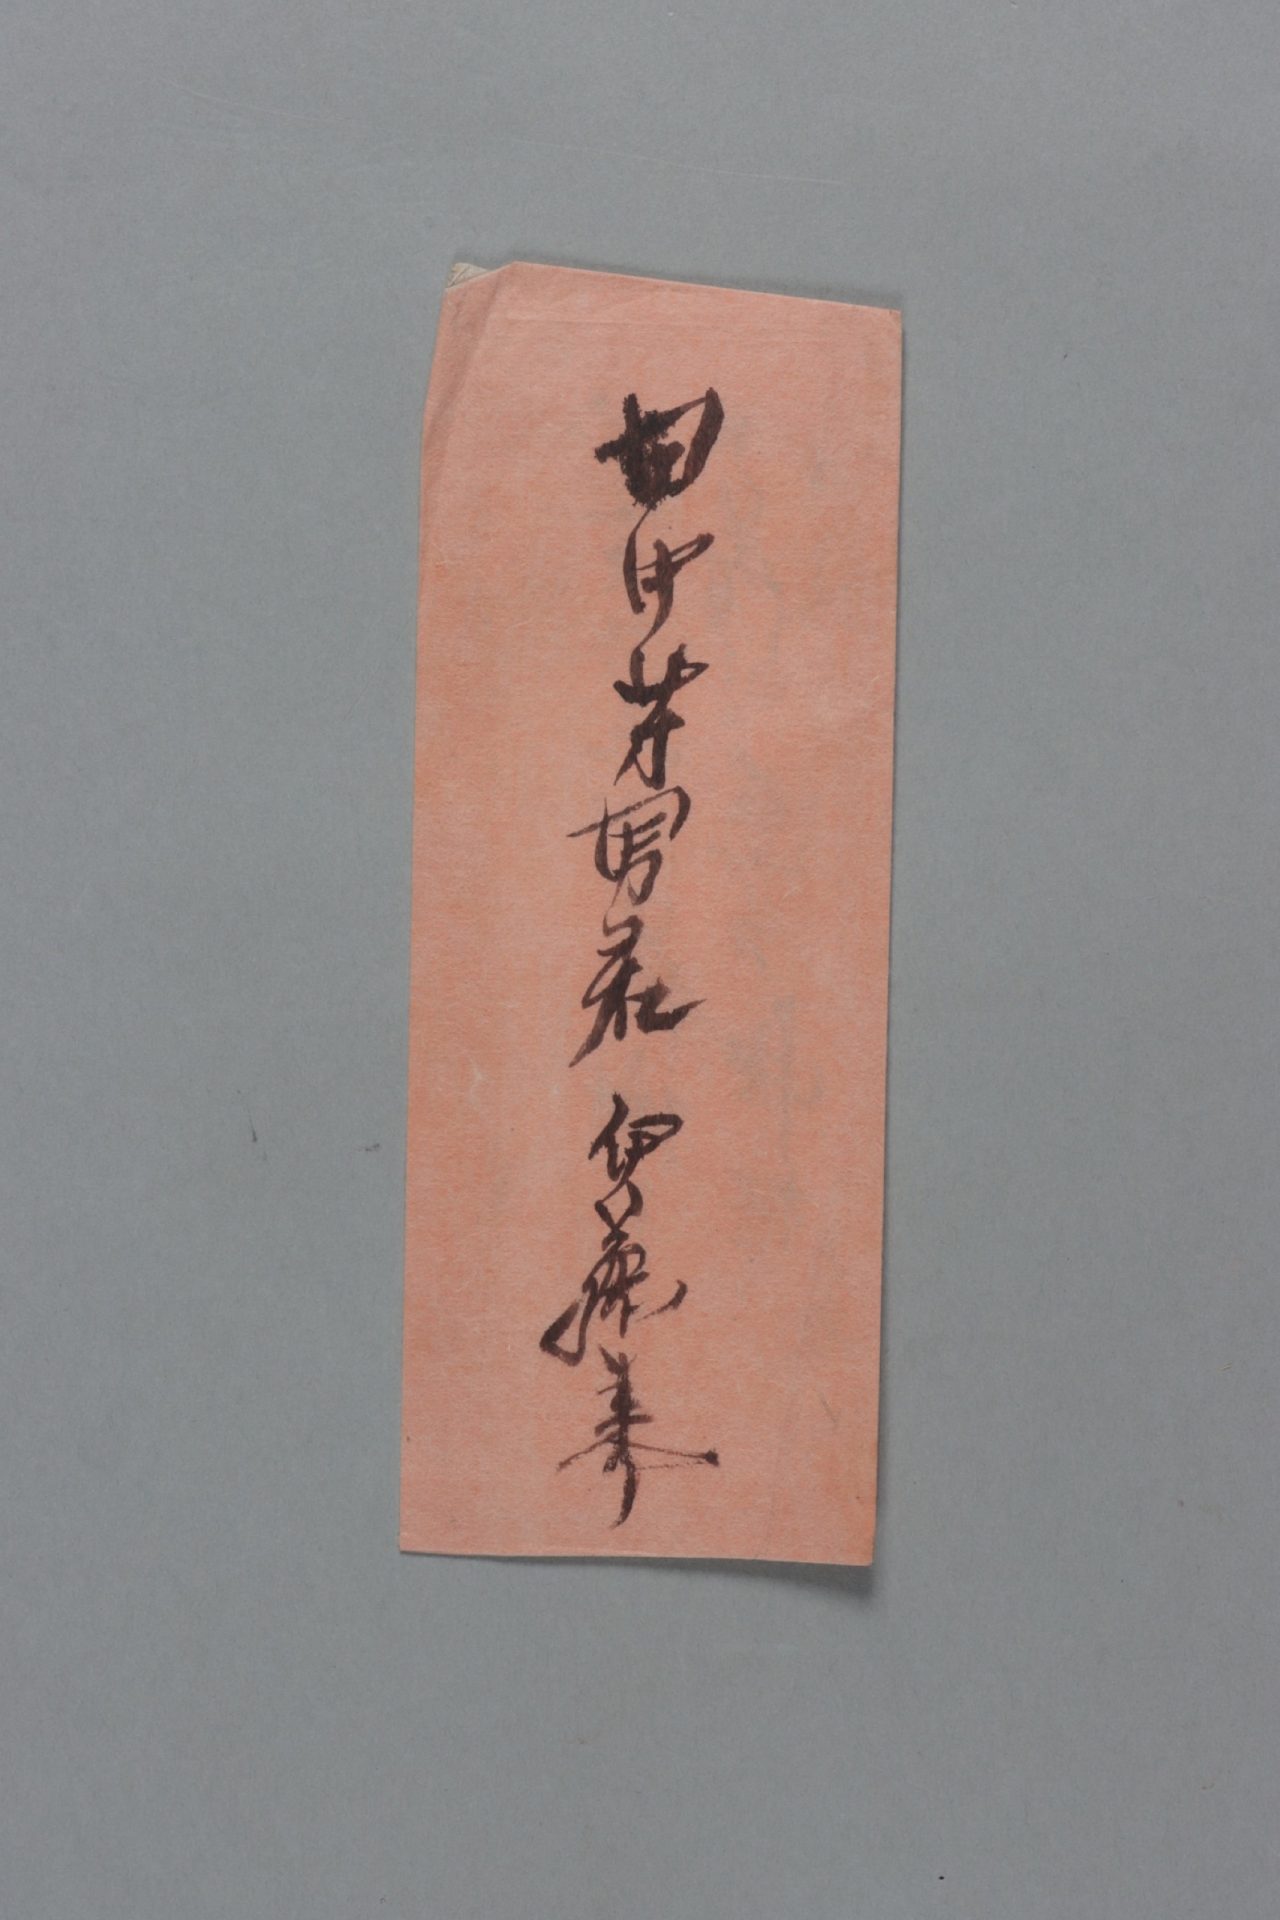 田中芳男君 伊藤圭